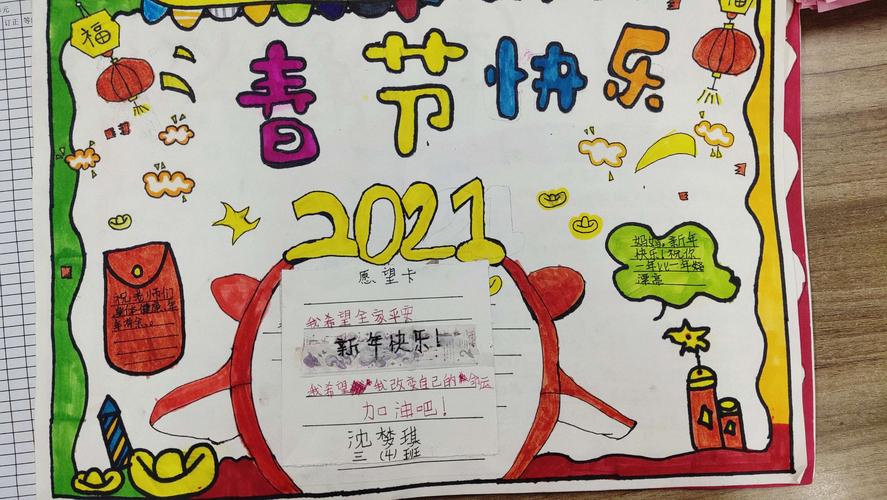 订正
福
福
春节快乐
2021
愿望卡
我希望全家平安
新年快乐!
我希望我改变自己的命运
加油吧!
沈梦琪
三(4)班
祝老师们
身体健康,年
年有余。
妈妈,新年
快乐!祝你
一年比一年
漂亮